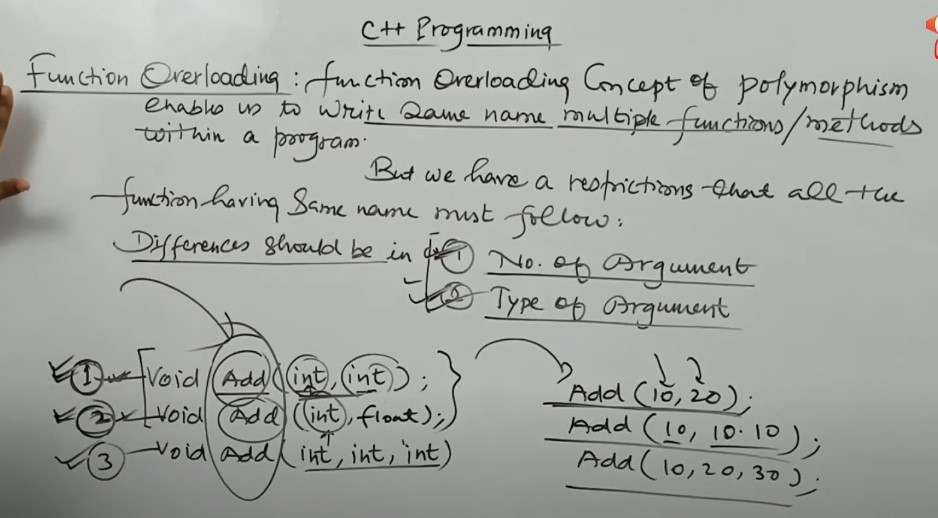 C++ Programming
Function Overloading : function Overloading Concept of polymorphism
enables us to write same name multiple functions/methods
within a program.
But we have a restrictions that all the
function having Same name must follow:
Differences should be in
① No. of Argument
② Type of Argument
① Void Add (int, int);
② Void Add (int, float);
③ Void Add (int, int, int)
Add (10, 20);
Add (10, 10.10);
Add (10, 20, 30);